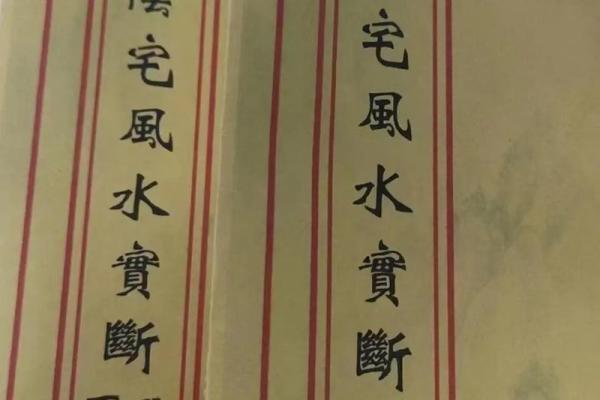 宅風水實斷
宅風水實斷